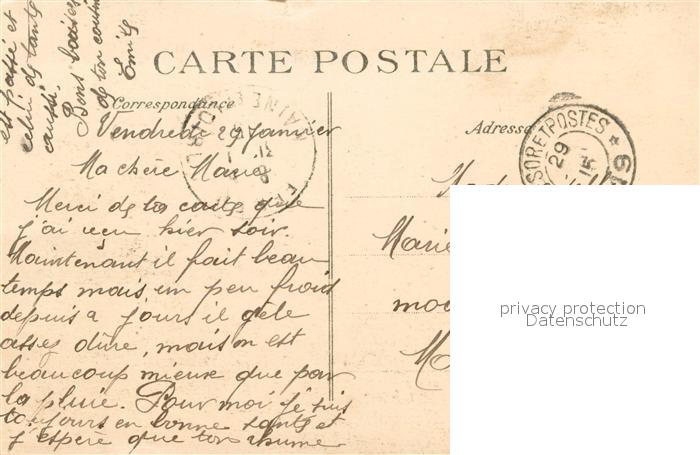 CARTE POSTALE
Correspondance
Adresse
Vendredi 29 Janvier
Ma chère Marie
Merci de ta carte que
j'ai reçu hier soir.
Maintenant il fait beau
temps mais un peu froid
depuis 2 jours il gèle
assez dûre, mais on est
beaucoup mieux que par
la pluie. Pour moi je suis
toujours en bonne santé et
j'espère que ton rhume
est passé et
celui de tante
aussi.
Bons baisers
de ton cousin
Emile
Marie
SOR ET POSTES ★
29
15
19
privacy protection
Datenschutz